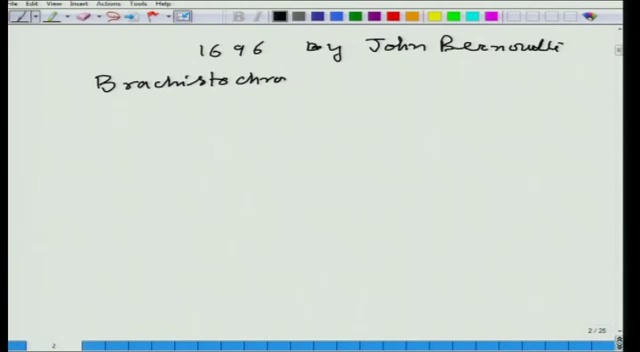 File Edit View Insert Actions Tools Help
1696 by John Bernoulli
Brachistochro
2 / 25
2